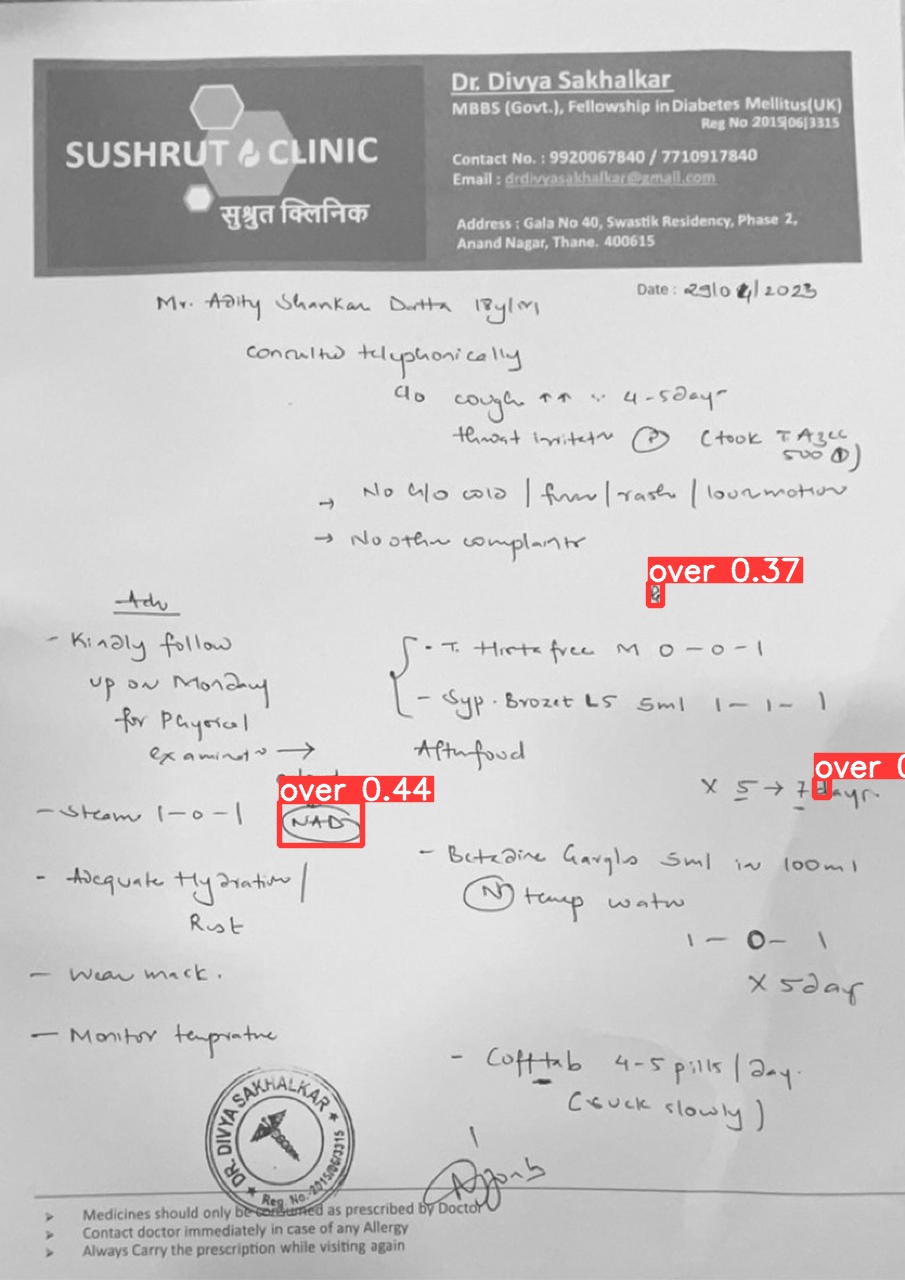 SUSHRUT CLINIC
सुश्रुत क्लिनिक
Dr. Divya Sakhalkar
MBBS (Govt.), Fellowship in Diabetes Mellitus(UK)
Reg No 2015|06|3315
Contact No. : 9920067840 / 7710917840
Email : drdivyasakhalkar@gmail.com
Address : Gala No 40, Swastik Residency, Phase 2,
Anand Nagar, Thane. 400615
Date : 29/04/2023
Mr. Adity Shankar Dutta 18y/M
Consulted telephonically
c/o cough ↑↑ 4-5day
throat irritatn (P) (took T Azee
500 (1))
→ No c/o cold / fever / rash / loosemotion
→ No other complaints
over 0.37
Adv
- Kindly follow
up on Monday
for Physical
examinatn →
over 0.44
NAD
- Steam 1-0-1
- Adequate Hydration /
Rest
- Wear mask.
- Monitor temprature
· T. Histafree M 0-0-1
- Syp. Brozet LS 5ml 1-1-1
After food
over 0
X 5 → 7 days.
- Betadine Gargles 5ml in 100ml
(N) temp water
1-0-1
X 5day
- Cofftab 4-5 pills / day.
(suck slowly)
DR. DIVYA SAKHALKAR
Reg. No.-2015/06/3315
➤ Medicines should only be consumed as prescribed by Doctor
➤ Contact doctor immediately in case of any Allergy
➤ Always Carry the prescription while visiting again